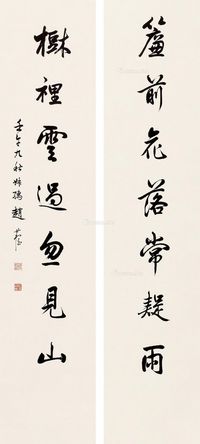 簾前花落常疑雨
樹裡雲過忽見山
壬午九秋
趙